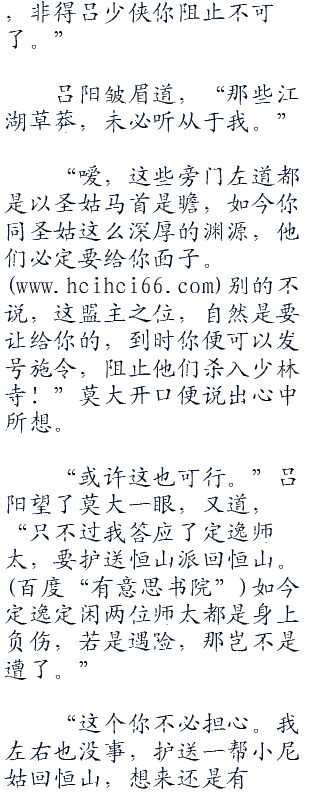 ，非得吕少侠你阻止不可
了。”
吕阳皱眉道，“那些江
湖草莽，未必听从于我。”
“嗳，这些旁门左道都
是以圣姑马首是瞻，如今你
同圣姑这么深厚的渊源，他
们必定要给你面子。
(www.hcihci66.com)别的不
说，这盟主之位，自然是要
让给你的，到时你便可以发
号施令，阻止他们杀入少林
寺！”莫大开口便说出心中
所想。
“或许这也可行。”吕
阳望了莫大一眼，又道，
“只不过我答应了定逸师
太，要护送恒山派回恒山。
(百度“有意思书院”)如今
定逸定闲两位师太都是身上
负伤，若是遇险，那岂不是
遭了。”
“这个你不必担心。我
左右也没事，护送一帮小尼
姑回恒山，想来还是有